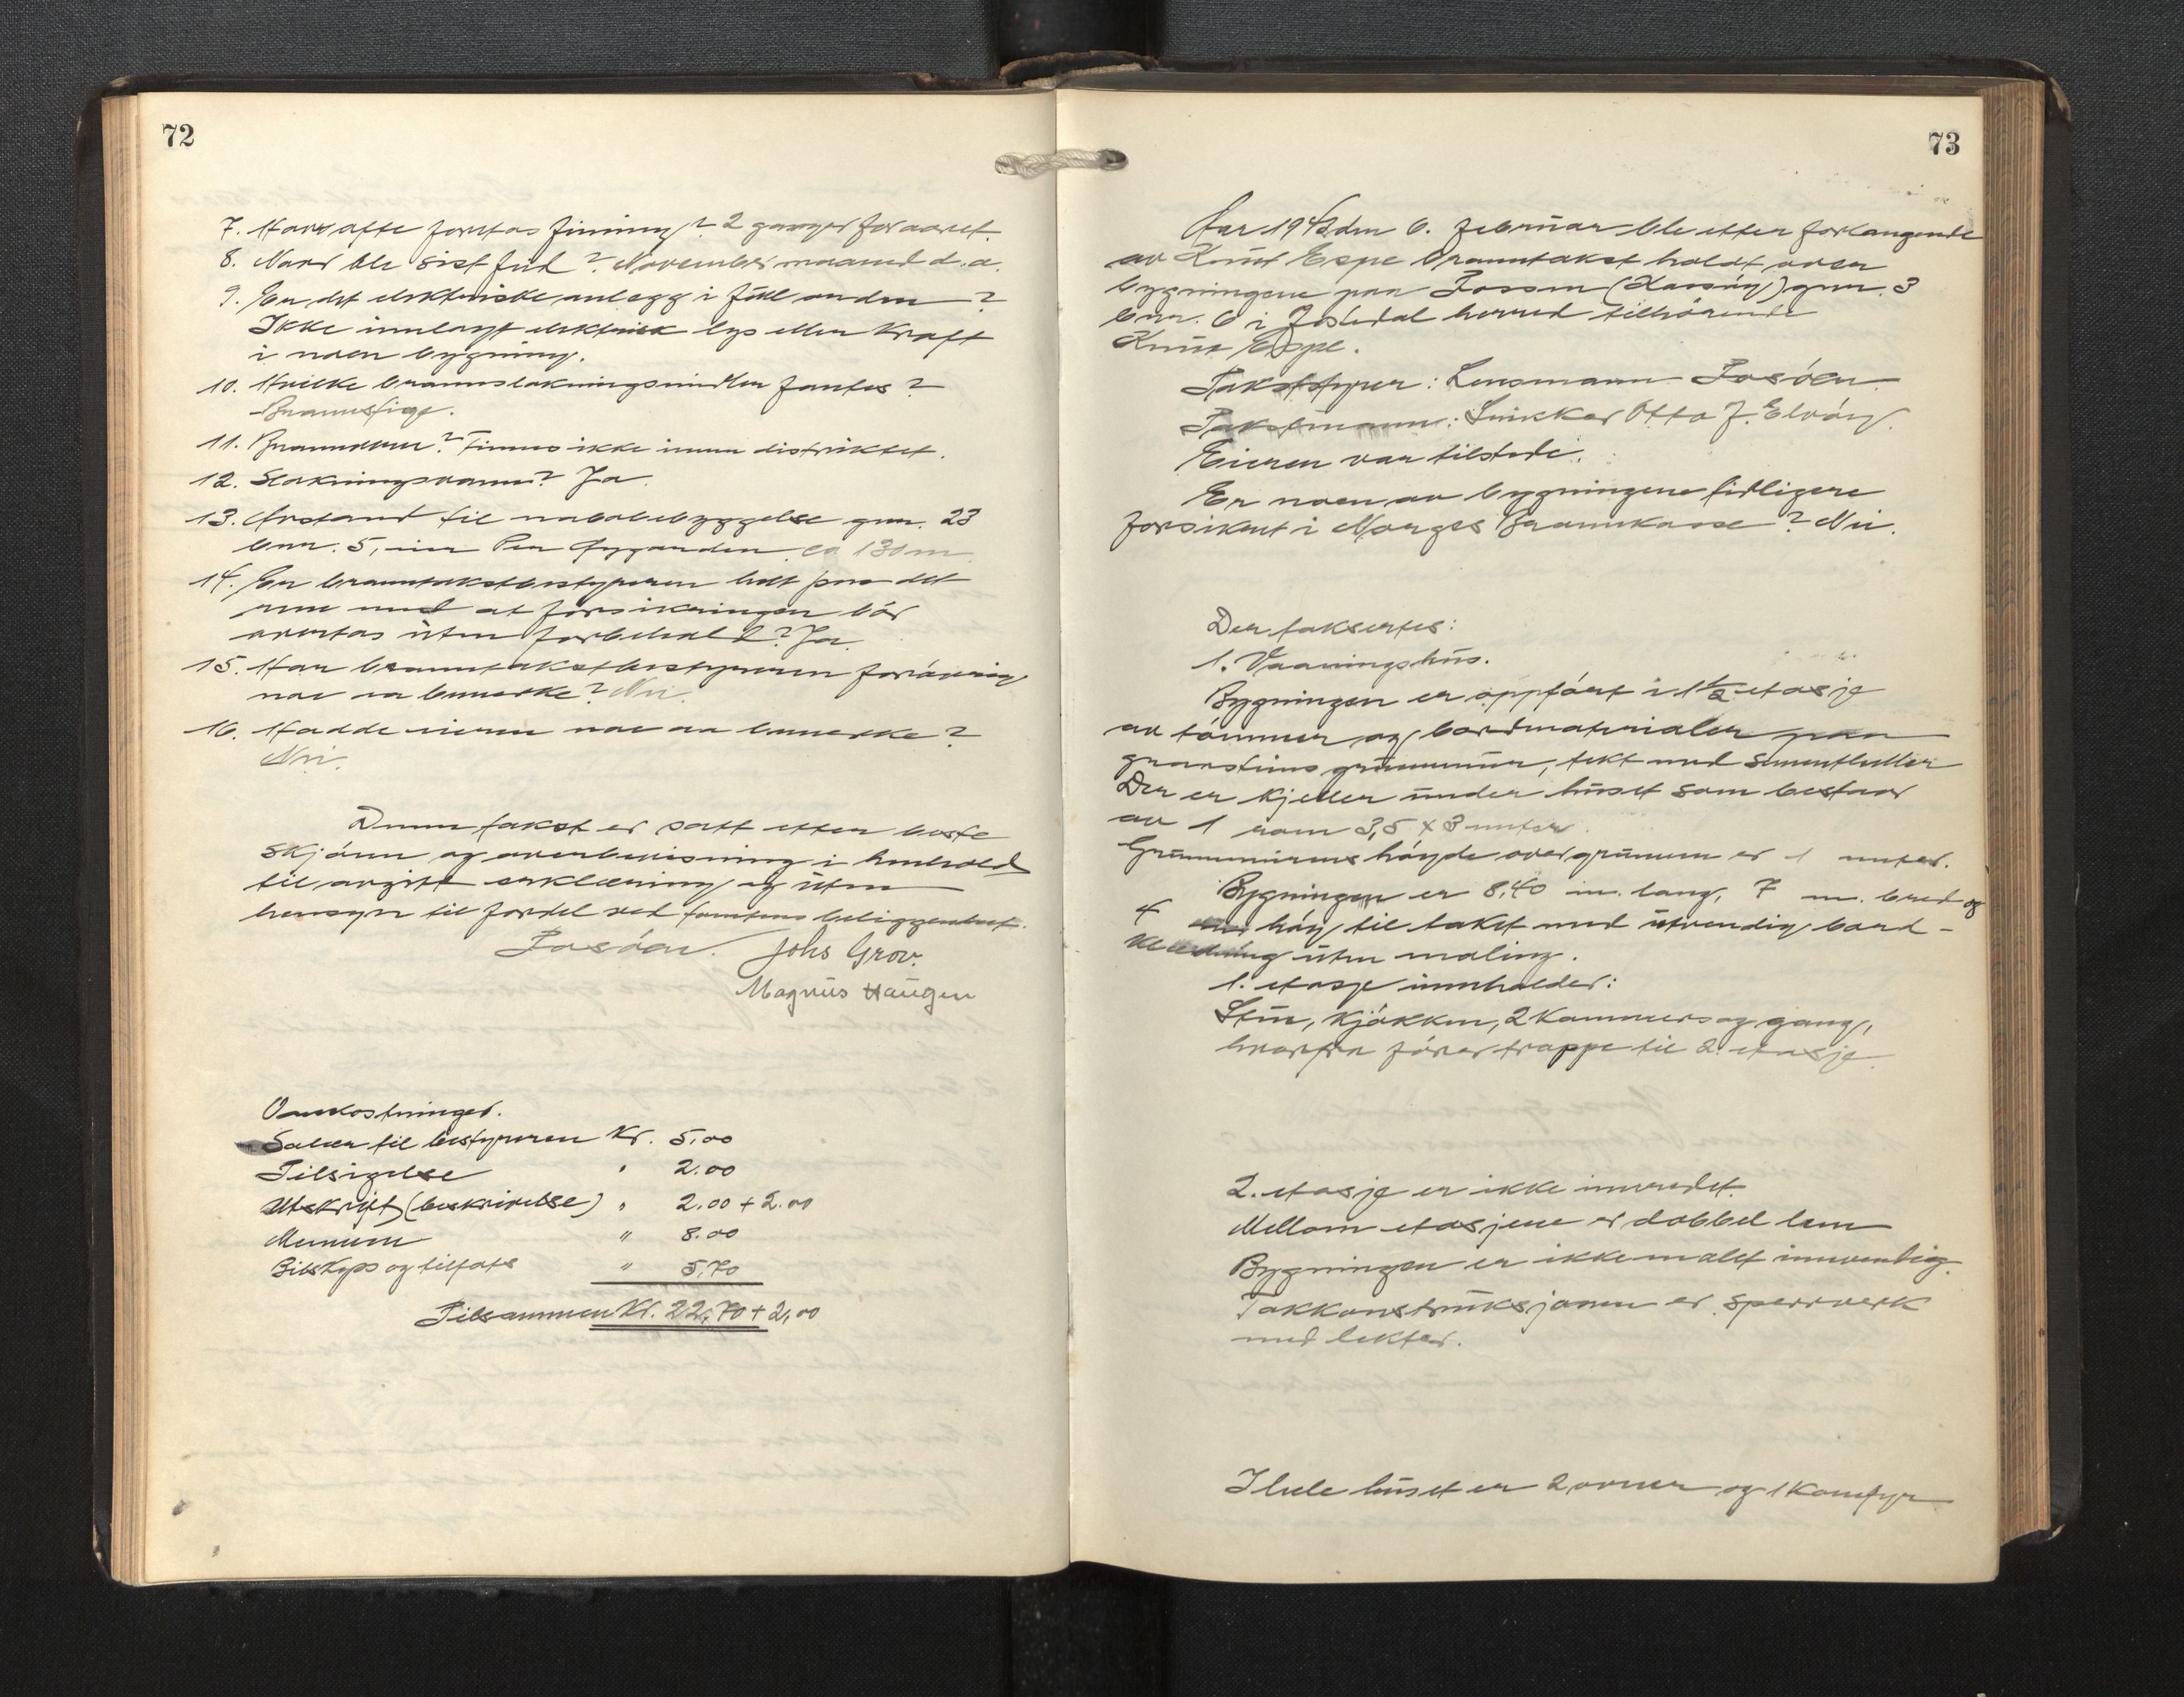 72
7. Hvor ofte foretas feiing? 2 ganger for aaret.
8. Naar ble sist feid? November maaned d.a.
9. Er det elektriske anlegg i full orden?
Ikke innlagt elektrisk lys eller kraft
i noen bygning.
10. Hvilke brannslokningsmidler fantes?
Brannstige.
11. Brannvern? Finnes ikke innen distriktet.
12. Slokningsvann? Ja.
13. Avstand til nabobebyggelse gnr. 23
bnr. 5, eier Per Øygarden ca 130 m
14. Er branntakstbestyreren helt paa det
rene med at forsikringen bör
overtas uten forbehold? Ja.
15. Har branntakstbestyreren foröevrig
noe aa bemerke? Nei.
16. Hadde eieren noe aa bemerke?
Nei.
Denne takst er satt etter beste
skjönn og overbevisning i henhold
til avgitt erklæring og uten
hensyn til fordel ved tomtens beliggenhet.
Fosöen. Johs Grov.
Magnus Haugen
Omkostninger.
Salær til bestyreren Kr. 5,00
Tilsigelse " 2.00
Utskrift (beskrivelse) " 2.00 + 2.00
Mennene " 8.00
Bilskyss og tilfots " 5,70
Tilsammen Kr. 22,70 + 2,00
73
Aar 1942 den 6. februar ble etter forlangende
av Knut Espe branntakst holdt over
bygningene paa Fossen gnr. 3
bnr. 6 i Jostedal herred tilhörende
Knut Espe.
Takststyrer: Lensmann Fosöen.
Takstmann: Snikker Otto J. Elvöy.
Eieren var tilstede.
Er noen av bygningene tidligere
forsikret i Norges Brannkasse? Nei.
Der taksertes:
1. Vaaningshus.
Bygningen er oppfört i 1 1/2 etasje
av tömmer og bordmaterialer paa
graasteins grunnmur, tekt med sementheller
Der er kjeller under huset som bestaar
av 1 rom 3,5 x 3 meter.
Grunnmurens höyde over grunnen er 1 meter.
Bygningen er 8,40 m. lang, 7 m. bred og
4 m. höy til taket med utvendig bord-
kledning uten maling.
1. etasje inneholder:
Stue, kjökken, 2 kammers og gang,
hvorfra förer trappe til 2. etasje
2. etasje er ikke innredet.
Mellom etasjene er dobbel lem
Bygningen er ikke malt innvendig.
Takkonstruksjonen er sperrverk
med lekter.
I hele huset er 2 ovner og 1 komfyr